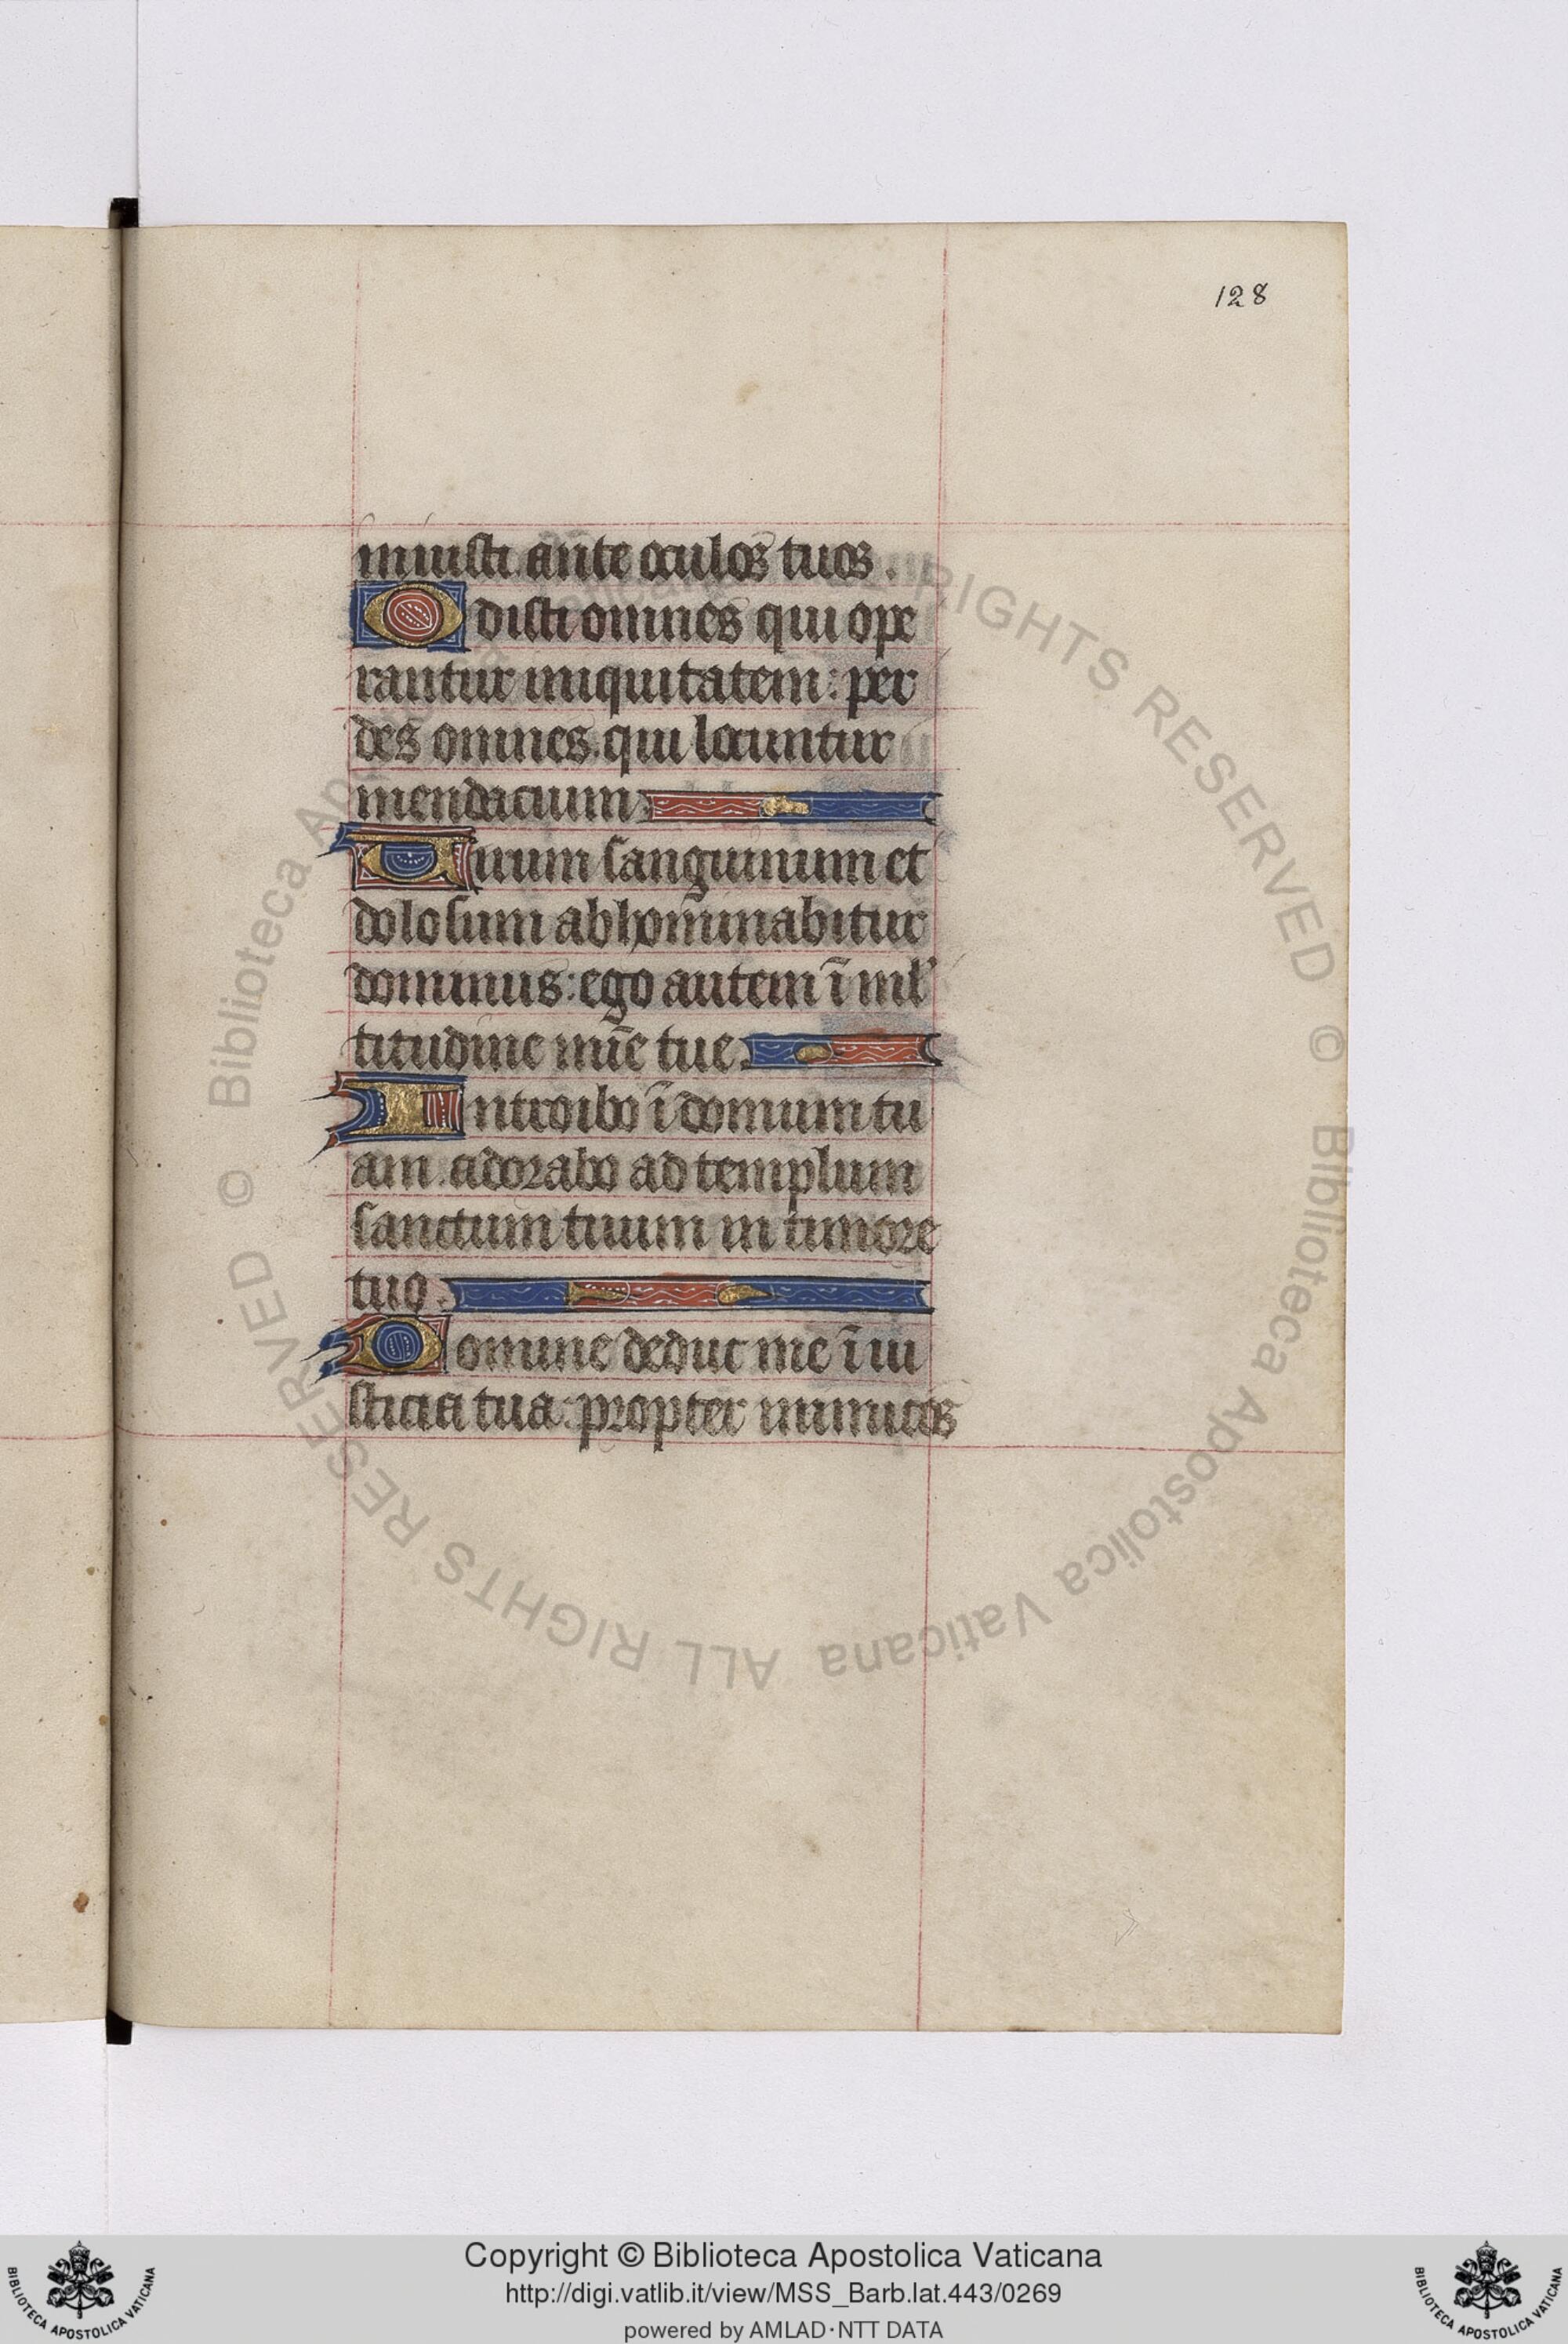 128
iniusti ante oculos tuos.
Odisti omnes qui ope
rantur iniquitatem: per
des omnes. qui locuntur
mendacium.
Uirum sanguinum et
dolosum abhominabitur
dominus: ego autem ī ml'
titudine mīe tue.
Introibo ī domum tu
am. adorabo ad templum
sanctum tuum in timore
tuo.
Domine deduc me ī iu
sticia tua: propter inimicos
© Biblioteca Apostolica Vaticana ALL RIGHTS RESERVED
© Biblioteca Apostolica Vaticana ALL RIGHTS RESERVED
Copyright © Biblioteca Apostolica Vaticana
http://digi.vatlib.it/view/MSS_Barb.lat.443/0269
powered by AMLAD·NTT DATA
BIBLIOTECA APOSTOLICA VATICANA
BIBLIOTECA APOSTOLICA VATICANA